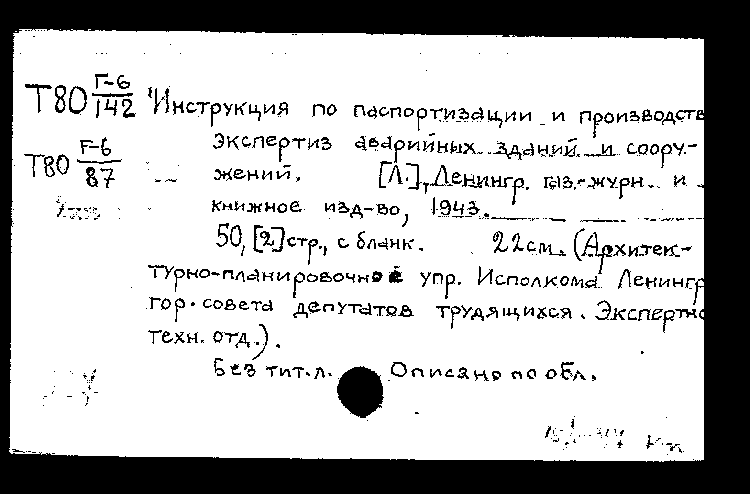 Т80 Г-6/142 Инструкция по паспортизации и производств
экспертиз аварийных зданий и соору-
Т80 F-6/87 жений. [Л.], Ленингр. газ.-журн. и
книжное изд-во, 1943.
50, [2] стр., с бланк. 22 см. (Архитек-
турно-планировочное упр. Исполкома Ленингр
гор. совета депутатов трудящихся. Экспертно
техн. отд.).
Без тит. л. Описано по обл.